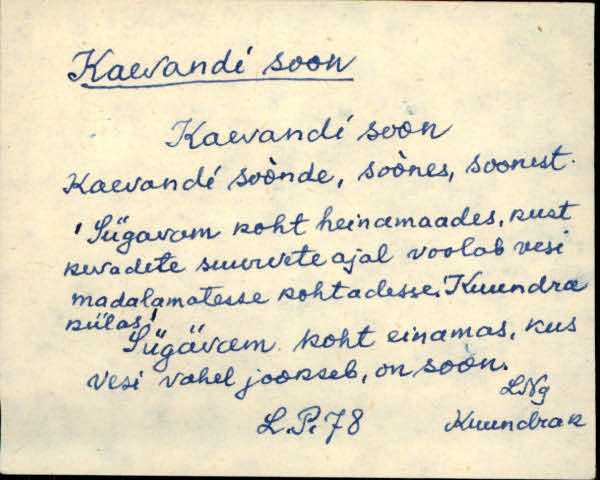 Kaevandi soon
Kaevandí soòn
Kaevandí soònde, soònes, soonest.
'Sügavam koht heinamaades, kust
kevadete suurvete ajal voolab vesi
madalamatesse kohtadesse. Kuundra
külas.'
Sügävam koht einamas, kus
vesi vahel jookseb, on soòn.
LNg
L.P. 78 Kuundra k